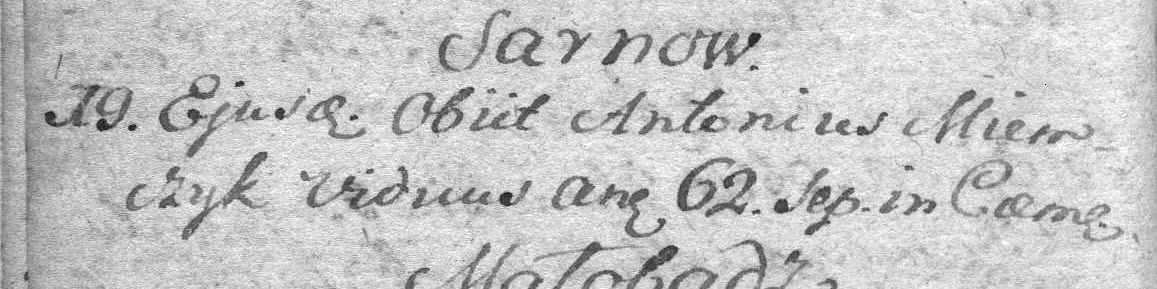 Sarnow.
19. Ejusd. Obiit Antonius Niem-
czyk viduus ann. 62. sep. in Coeme.
Małobądz